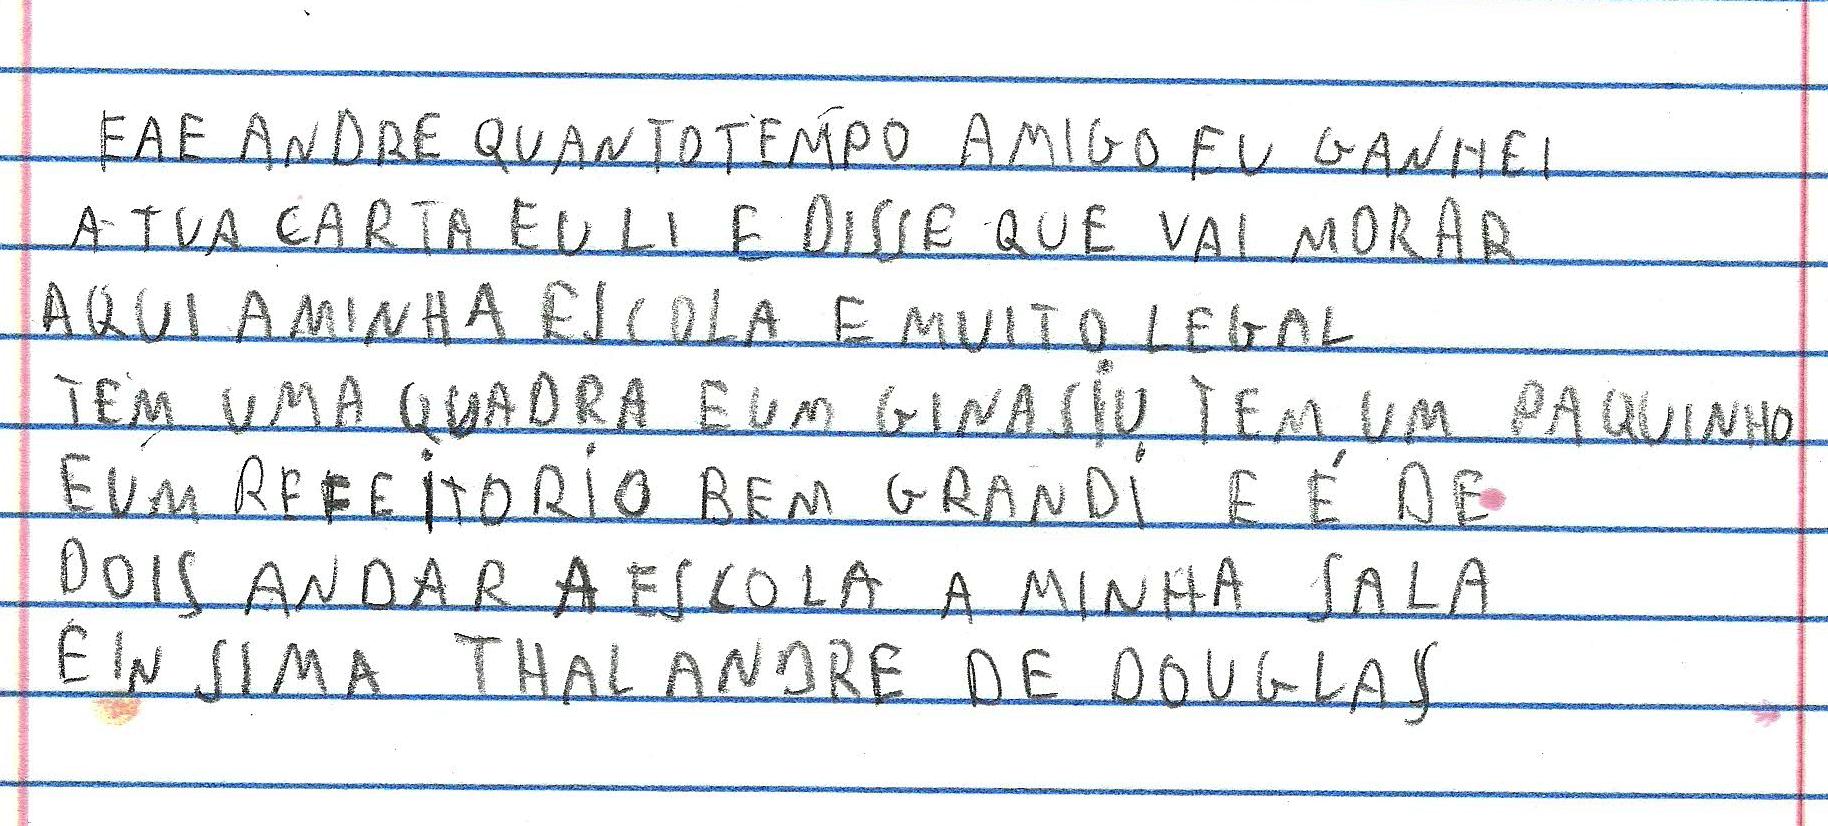 EAE ANDRE QUANTOTEMPO AMIGO EU GANHEI
A TUA CARTA EU LI E DISSE QUE VAI MORAR
AQUI AMINHA ESCOLA E MUITO LEGAL
TEM UMA QUADRA EUM GINASIU TEM UM PAQUINHO
EUM REFEITORIO BEM GRANDI E É DE
DOIS ANDAR A ESCOLA A MINHA SALA
EIN SIMA THAL ANDRE DE DOUGLAS